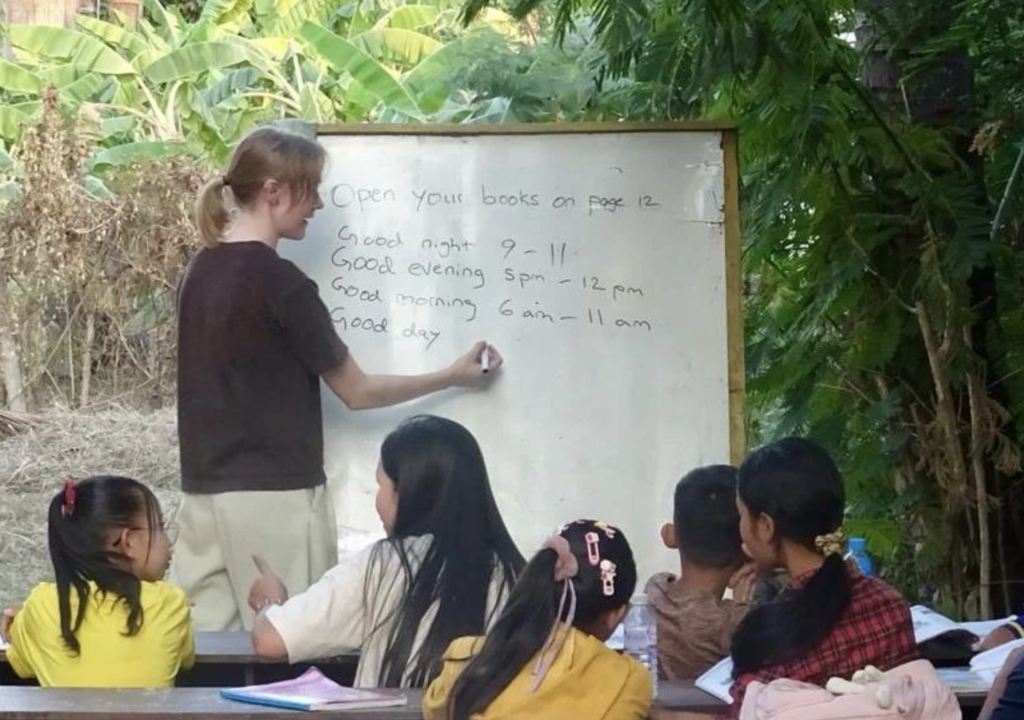 Open your books on page 12
Good night 9 - 11
Good evening 5pm - 12 pm
Good morning 6 am - 11 am
Good day